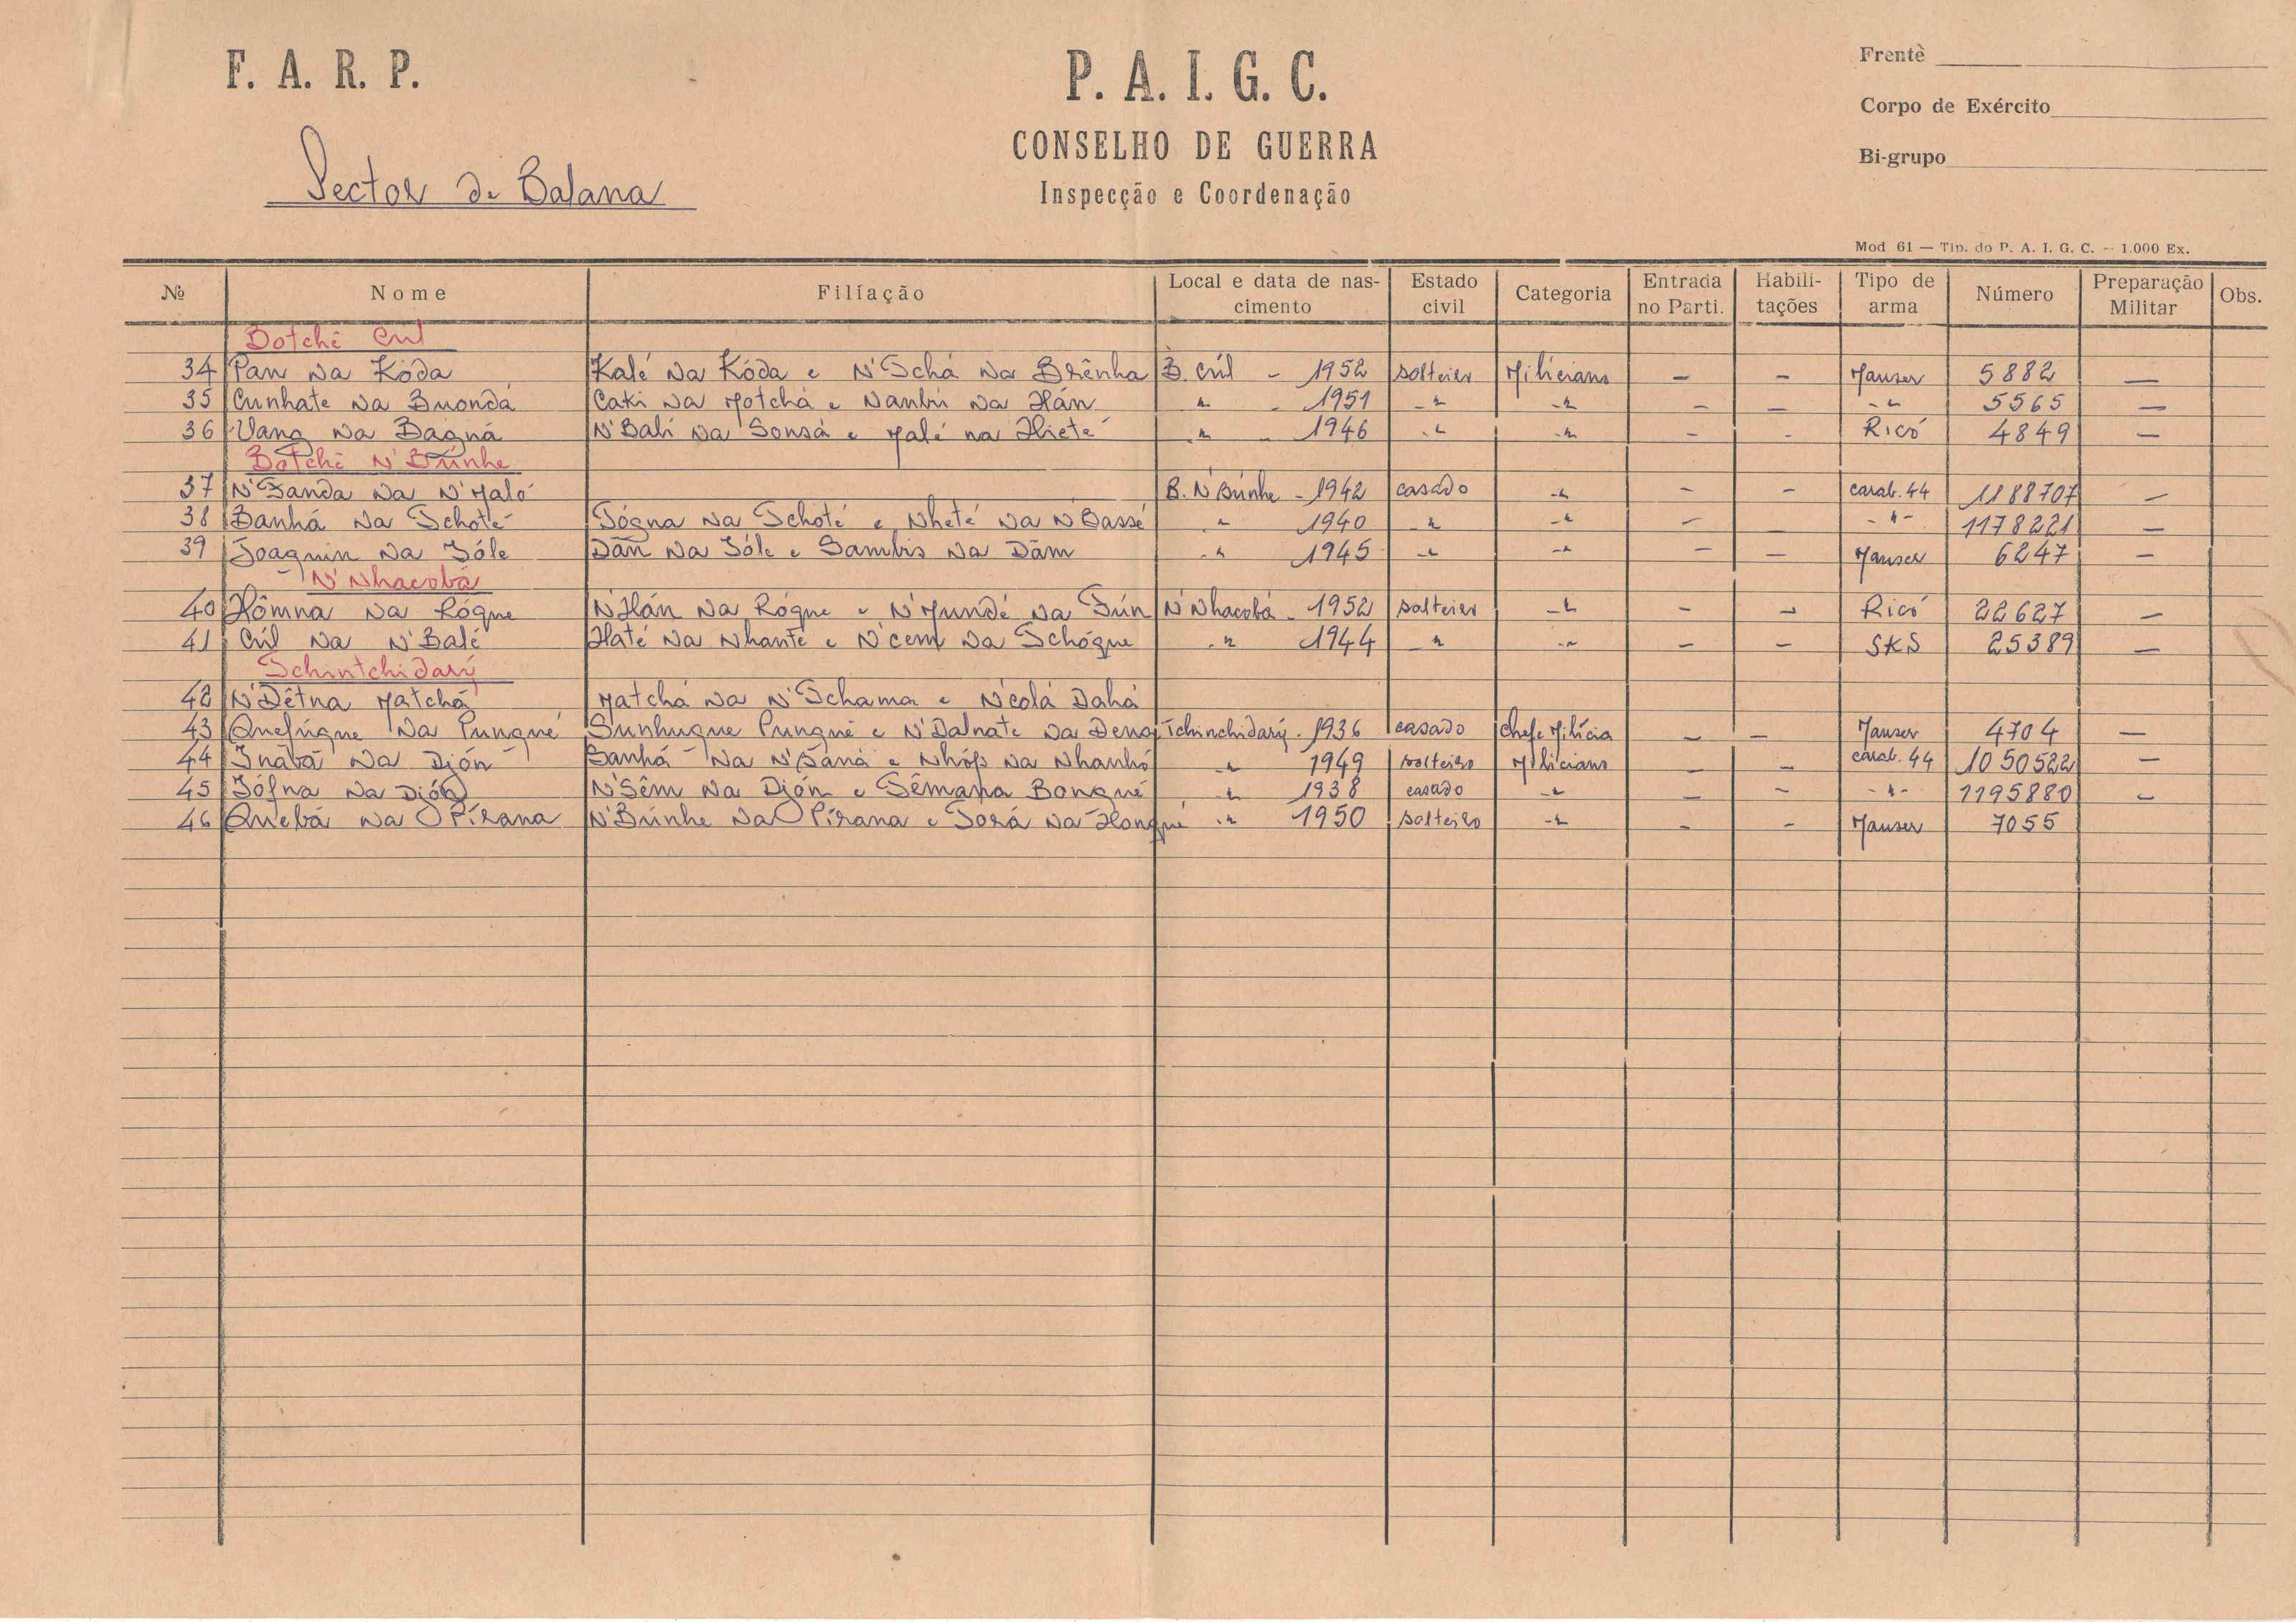 F. A. R. P.
P. A. I. G. C.
CONSELHO DE GUERRA
Inspecção e Coordenação
Sector de Balana
Frentè
Corpo de Exército
Bi-grupo
Mod 61 — Tip. do P. A. I. G. C. — 1.000 Ex.
Nº Nome Filiação Local e data de nas-cimento Estado civil Categoria Entrada no Parti. Habili-tações Tipo de arma Número Preparação Militar Obs.
Botchê Cúl
34 Pan Na Kóda Kalé Na Kóda e N'Tchá Na Brênha B. Cúl - 1952 solteiro Miliciano — — Mauser 5882 —
35 Cunhate Na Buondá Caki Na Motchá e Nanbú Na Hán " - 1951 -"- -"- — — -"- 5565 —
36 Vang Na Bagná N'Bali Na Sonsá e Malé na Hieté " - 1946 -"- -"- — - Ricó 4849 —
Botchê N'Búnhe
37 N'Fanda Na N'Malo B. N'Búnhe - 1942 casado -"- — - carab. 44 1188707 —
38 Banhá Na Tchoté Tógna Na Tchoté e Nheté Na N'Bassé -"- 1940 -"- -"- — — -"- 1178221 —
39 Joaquin Na Sóle Dãn Na Sóle e Sambis Na Dãm -"- 1945 -"- -"- — — Mauser 6247 —
N'Nhacobá
40 Hômna Na Rógue N'Hán Na Rógue e N'Mundé Na Tún N'Nhacobá - 1952 solteiro -"- - - Ricó 22627 —
41 Cúl Na N'Balé Haté Na Nhanté e N'cem Na Tchógue -"- 1944 " -"- — — SKS 25389 —
Tchintchidarý
42 N'Dêtna Matchá Matchá Na N'Tchama e N'colá Dahá
43 Quefúgue Na Pungué Sunhugue Pungué e N'Dalnate Na Dena Tchinchidarý - 1936 casado Chefe Milícia — — Mauser 4704 —
44 Inãbã Na Dión Banhá Na N'Saná e Nhófs Na Nhanhó -"- 1949 solteiro Miliciano — — carab. 44 1050522 —
45 Jófna Na Dión N'Sêm Na Dión e Sêmana Bongué -"- 1938 casado -"- — - -"- 1195880 —
46 Quebá Na Pírana N'Búnhe Na Pírana e Torá Na Hongué -"- 1950 solteiro -"- - - Mauser 7055